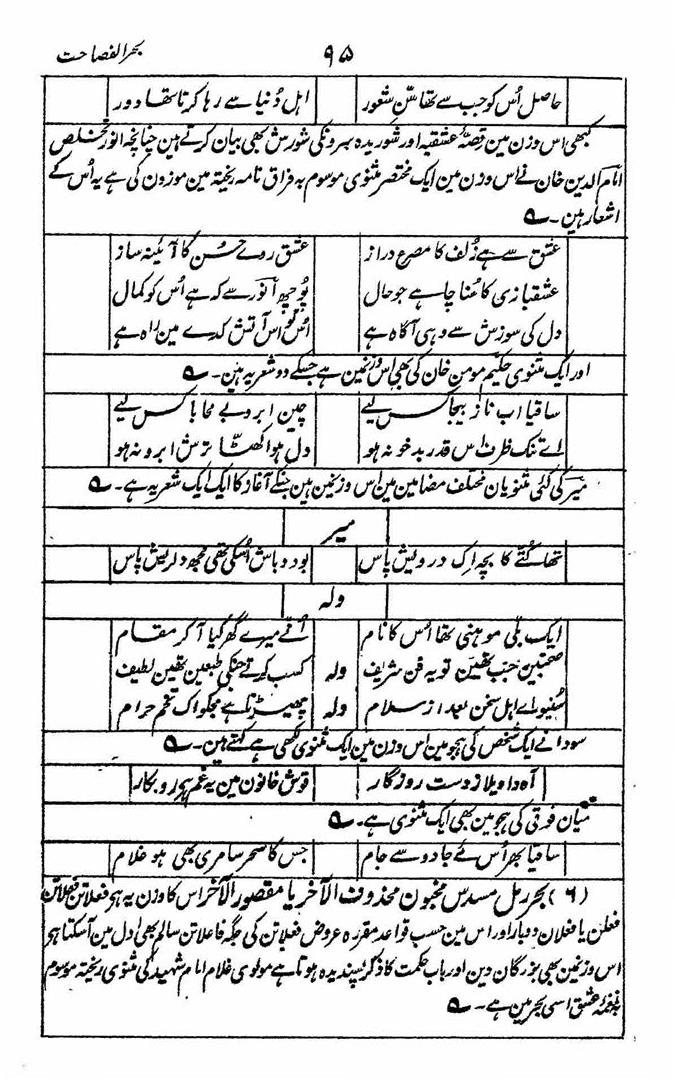 بحر الفصاحت
۹۵
حاصل اُس کو جب سے تھا سنِّ شعور اہل دُنیا سے رہا کرتا تھا دور
کبھی اس وزن مین قصۂ عشقیہ اور شوریدہ سرونکی شورش بھی بیان کرتے ہین چنانچہ انور تخلص
امام الدین خان نے اس وزن مین ایک مختصر مثنوی موسوم بہ فراق نامہ ریختہ مین موزون کی ہے یہ اُس کے
اشعار ہین ۔
عشق سے ہے زُلف کا مصرع دراز عشق روے حُسن کا آئینہ ساز
عشقبازی کا سُنا چاہے جو حال پُوچھ انور سے کہ ہے اُس کو کمال
دل کی سوزش سے وہی آگاہ ہے اُس کو اس آتش کدے مین راہ ہے
اور ایک مثنوی حکیم مومن خان کی بھی اس وزنمین ہے جسکے دو شعر یہ ہین ۔
ساقیا اب نازِ بیجا کس لیے چین ابرو بے محابا کس لیے
اے تنک ظرف اس قدر بدخو نہ ہو دل ہوا کھٹا ترش ابرو نہ ہو
میر کی کئی مثنویان مختلف مضامین مین اس وزنمین ہین جنکے آغاز کا ایک ایک شعر یہ ہے ۔
میر
تھا کُتّے کا بچہ اِک درویش پاس بود و باش اُسکی تھی مجھ دلریش پاس
ولہ
ایک بلّی موہنی تھا اُس کا نام اُنّے میرے گھر کیا آکر مقام
صحبتین جب تھین تو یہ فن شریف ولہ کسب کرتے جنکی طبعین تھین لطیف
سُنیو اے اہل سخن بعد از سلام ولہ چھیڑتا ہے مجکو اک تخم حرام
سودا نے ایک شخص کی ہجو مین اس وزن مین ایک مثنوی لکھی ہے کہتے ہین ۔
آہ واویلا ز دست روزگار قوش خانون مین یہ غم ہی رو بکار
میان فوقی کی ہجو مین بھی ایک مثنوی ہے ۔
ساقیا بھر اُس نے جادو سے جام جس کا سحر سامری بھی ہو غلام
(۶) بحر رمل مسدس مخبون محذوف الآخر یا مقصور الآخر اس کا وزن یہ ہی فعلاتن فعلاتن
فعلن یا فعلان دو بار اور اس مین حسب قواعد مقررہ عروض فعلاتن کی جگہ فاعلاتن سالم بھی اول مین آسکتا ہی
اس وزنمین بھی بزرگان دین اور باب حکمت کا ذکر پسندیدہ ہوتا ہے مولوی غلام امام شہید کی مثنوی ریختہ موسوم
بہ نغمۂ عشق اسی بحر مین ہے ۔